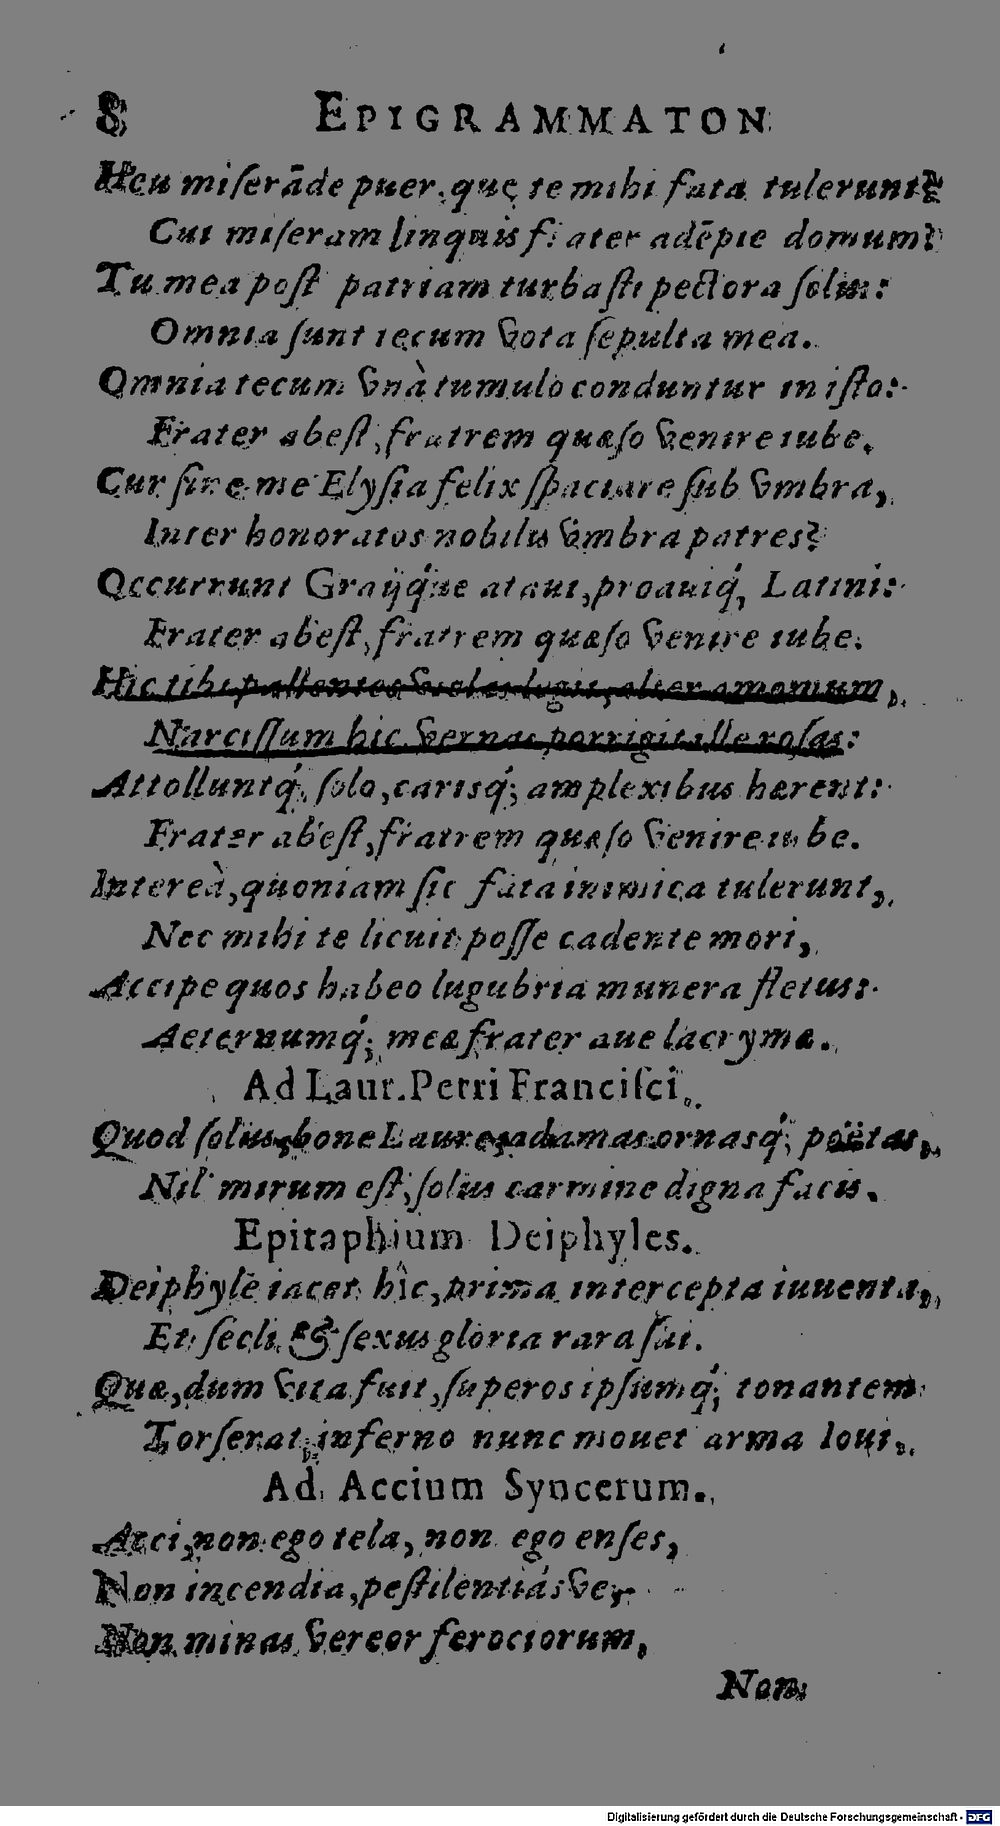 8 EPIGRAMMATON
Heu miſerāde puer, quę te mihi fata tulerunt?
Cui miſeram linquis frater adēpte domum?
Tu mea poſt patriam turbaſti pectora ſolus:
Omnia ſunt tecum vota ſepulta mea.
Omnia tecum vnà tumulo conduntur in iſto:
Frater abeſt, fratrem quæſo venire iube.
Cur ſine me Elyſia felix ſpaciare ſub vmbra,
Inter honoratos nobilis vmbra patres?
Occurrunt Graijq́ue ataui, proauiq́, Latini:
Frater abeſt, fratrem quæſo venire iube.
Hic tibi pallentes violas legit, alter amomum,
Narciſſum hic, vernas porrigit ille roſas:
Attolluntq́; ſolo, carisq́; amplexibus hærent:
Frater abeſt, fratrem quæſo venire iube.
Intereà, quoniam ſic fata inimica tulerunt,
Nec mihi te licuit poſſe cadente mori,
Accipe quos habeo lugubria munera fletus:
Aeternumq́; meæ frater aue lacrymæ.
Ad Laur. Petri Franciſci.
Quod ſolus, bone Laure, adamas ornasq́; poëtas,
Nil mirum eſt, ſolus carmine digna facis.
Epitaphium Deiphyles.
Deiphyle iacet hîc, prima intercepta iuuenta,
Et ſecli & ſexus gloria rara ſui.
Quæ, dum vita fuit, ſuperos ipſumq́; tonantem
Torſerat, inferno nunc mouet arma Ioui.
Ad Accium Syncerum.
Acci, non ego tela, non ego enſes,
Non incendia, peſtilentiásve,
Non minas vereor ferociorum,
Non
Digitalisierung gefördert durch die Deutsche Forschungsgemeinschaft - DFG